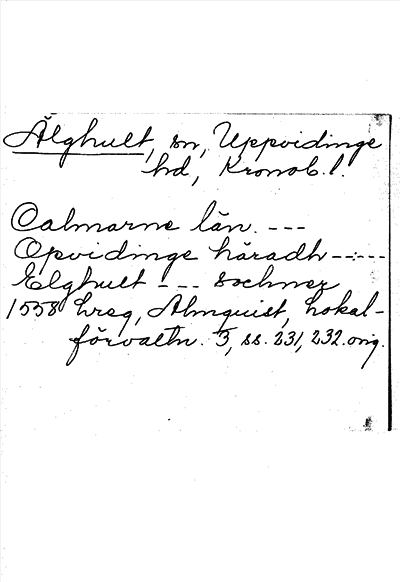 Älghult, sn, Uppvidinge
hd, Kronob. l.
Calmarne län. ---
Opvidinge häradh -----
Elghult --- sochner
1558 hreg, Almquist, Lokal-
förvaltn. 3, ss. 231, 232. orig.